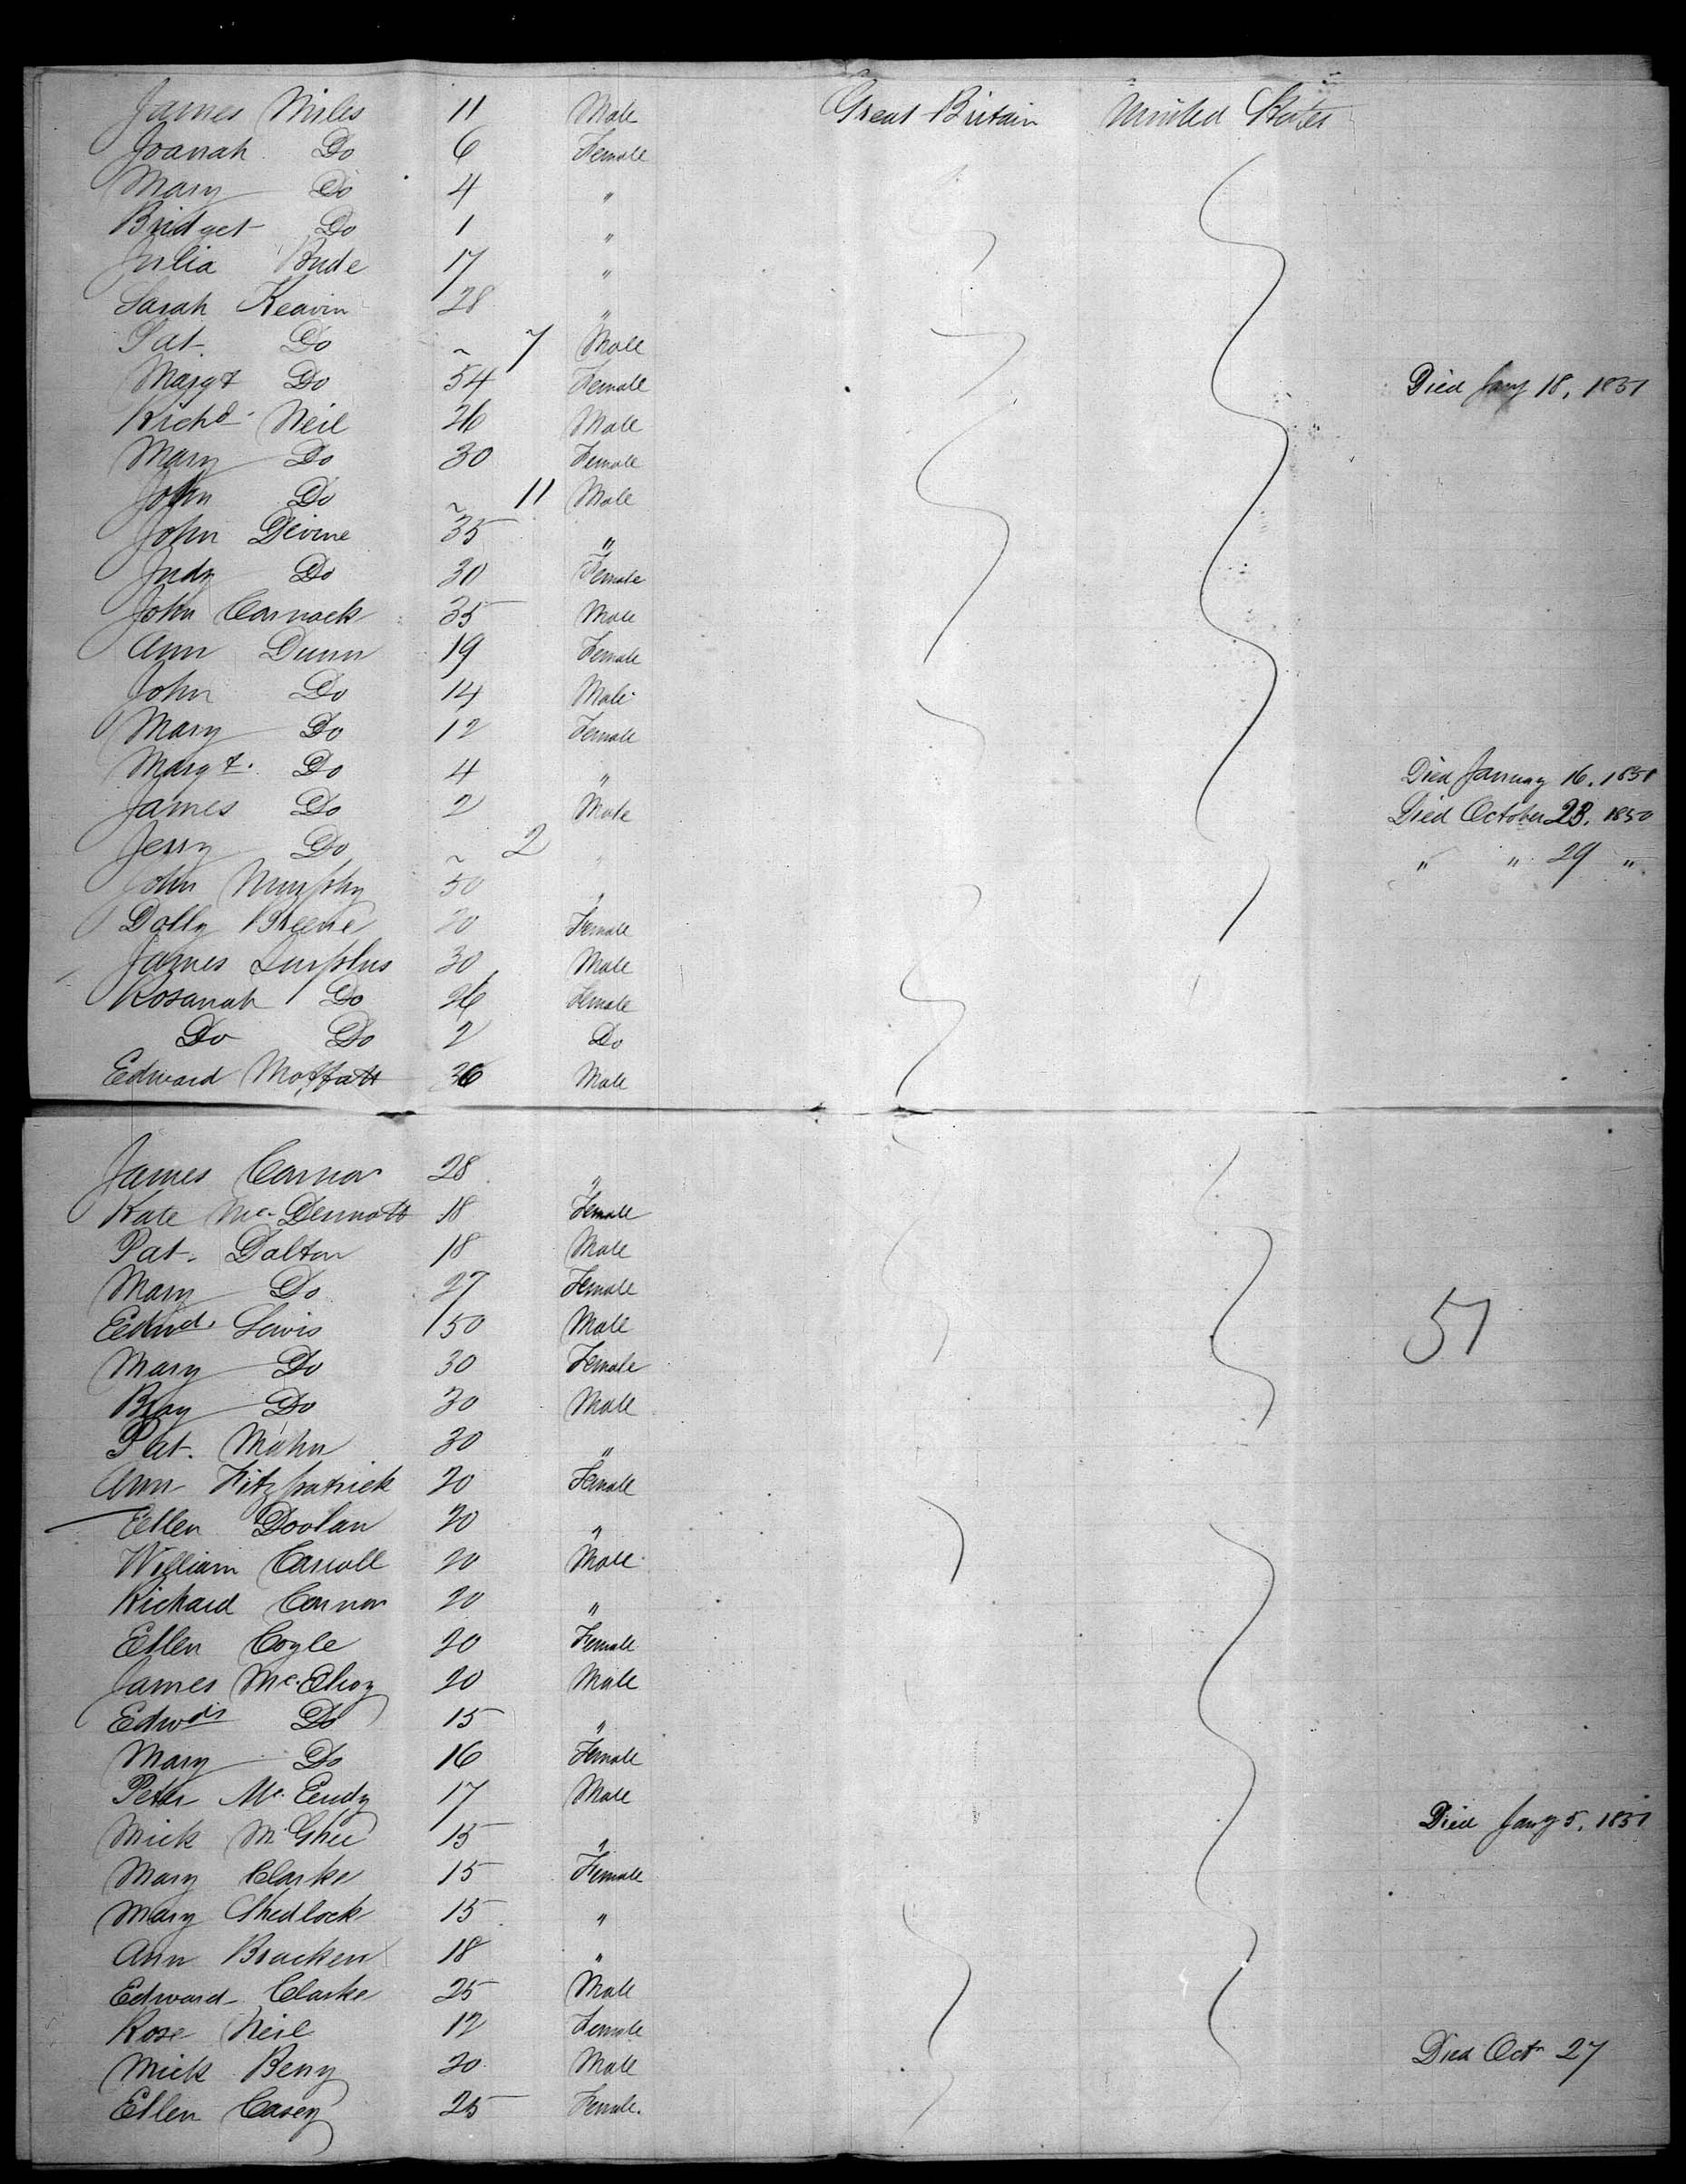 James Miles 11 Male Great Britain United States
Joanah Do 6 Female
Mary Do 4 "
Bridget Do 1 "
Julia Bude 17 "
Sarah Keavin 28 "
Pat Do ~ 7 Male
Margt Do 54 Female Died Jany 18, 1851
Richd Neil 26 Male
Mary Do 30 Female
John Do ~ 11 Male
John Devine 35 "
Judy Do 30 Female
John Cornack 35 Male
Ann Dunn 19 Female
John Do 14 Male
Mary Do 12 Female
Margt. Do 4 " Died January 16, 1851
James Do 2 Male Died October 23, 1850
Jerry Do ~ 2 " " " 29 "
John Murphy 50 "
Dolly Greene 20 Female
James Surplus 30 Male
Rosanah Do 26 Female
Do Do 2 Do
Edward Moffatt 36 Male
James Connor 28 "
Kate Mc. Dermott 18 Female
Pat. Dalton 18 Male
Mary Do 27 Female
Edwd. Lewis 50 Male
51
Mary Do 30 Female
Do 30 Male
Pat. Mahn 30 "
Ann Fitzpatrick 20 Female
Ellen Doolan 20 "
William Carroll 20 Male
Richard Connor 20 "
Ellen Coyle 20 Female
James Mc. Elroy 20 Male
Edwd Do 15 "
Mary Do 16 Female
Peter Mc. 17 Male
Mick McGhee 15 " Died Jany 5, 1851
Mary Clarke 15 Female
Mary Shedlock 15 "
Ann Bracken 18 "
Edward Clarke 25 Male
Rose Neil 12 Female
Mick Berry 20 Male Died Oct 27
Ellen Casey 25 Female.